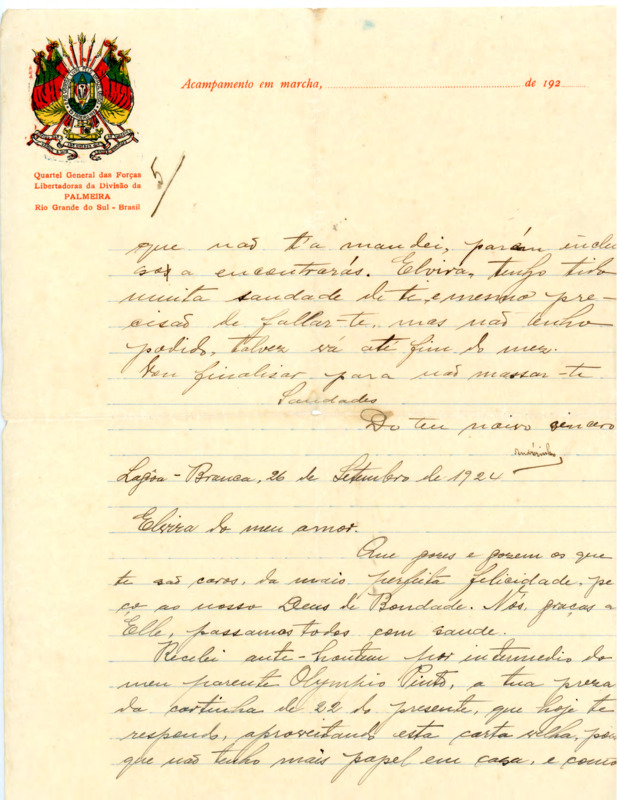 Acampamento em marcha, de 192
Quartel General das Forças
Libertadoras da Divisão da
PALMEIRA
Rio Grande do Sul - Brasil
5/
que não t'a mandei, porém inclu
sa a encontrarás. Elvira, tenho tido
muita saudade de ti, e mesmo pre-
cisão de fallar-te, mas não tenho
podido, talvez vá até fim do mez.
Vou finalisar para não massar-te.
Saudades
Do teu noivo sincero
Lagôa-Branca, 26 de Setembro de 1924
Elvira do meu amor.
Que gozes e gozem os que
te são caros, da mais perfeita felicidade, pe
ço ao nosso Deus de Bondade. Nós, graças a
Elle, passamos todos com saude.
Recebi ante-hontem por intermedio do
meu parente Olympio Pinto, a tua preza
da cartinha de 22 do presente, que hoje te
respondo, aproveitando esta carta velha, por
que não tenho mais papel em casa, e como